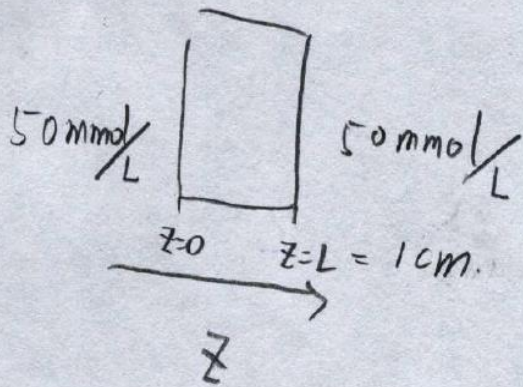 50 mmol/L
50 mmol/L
z=0
z=L = 1cm.
z